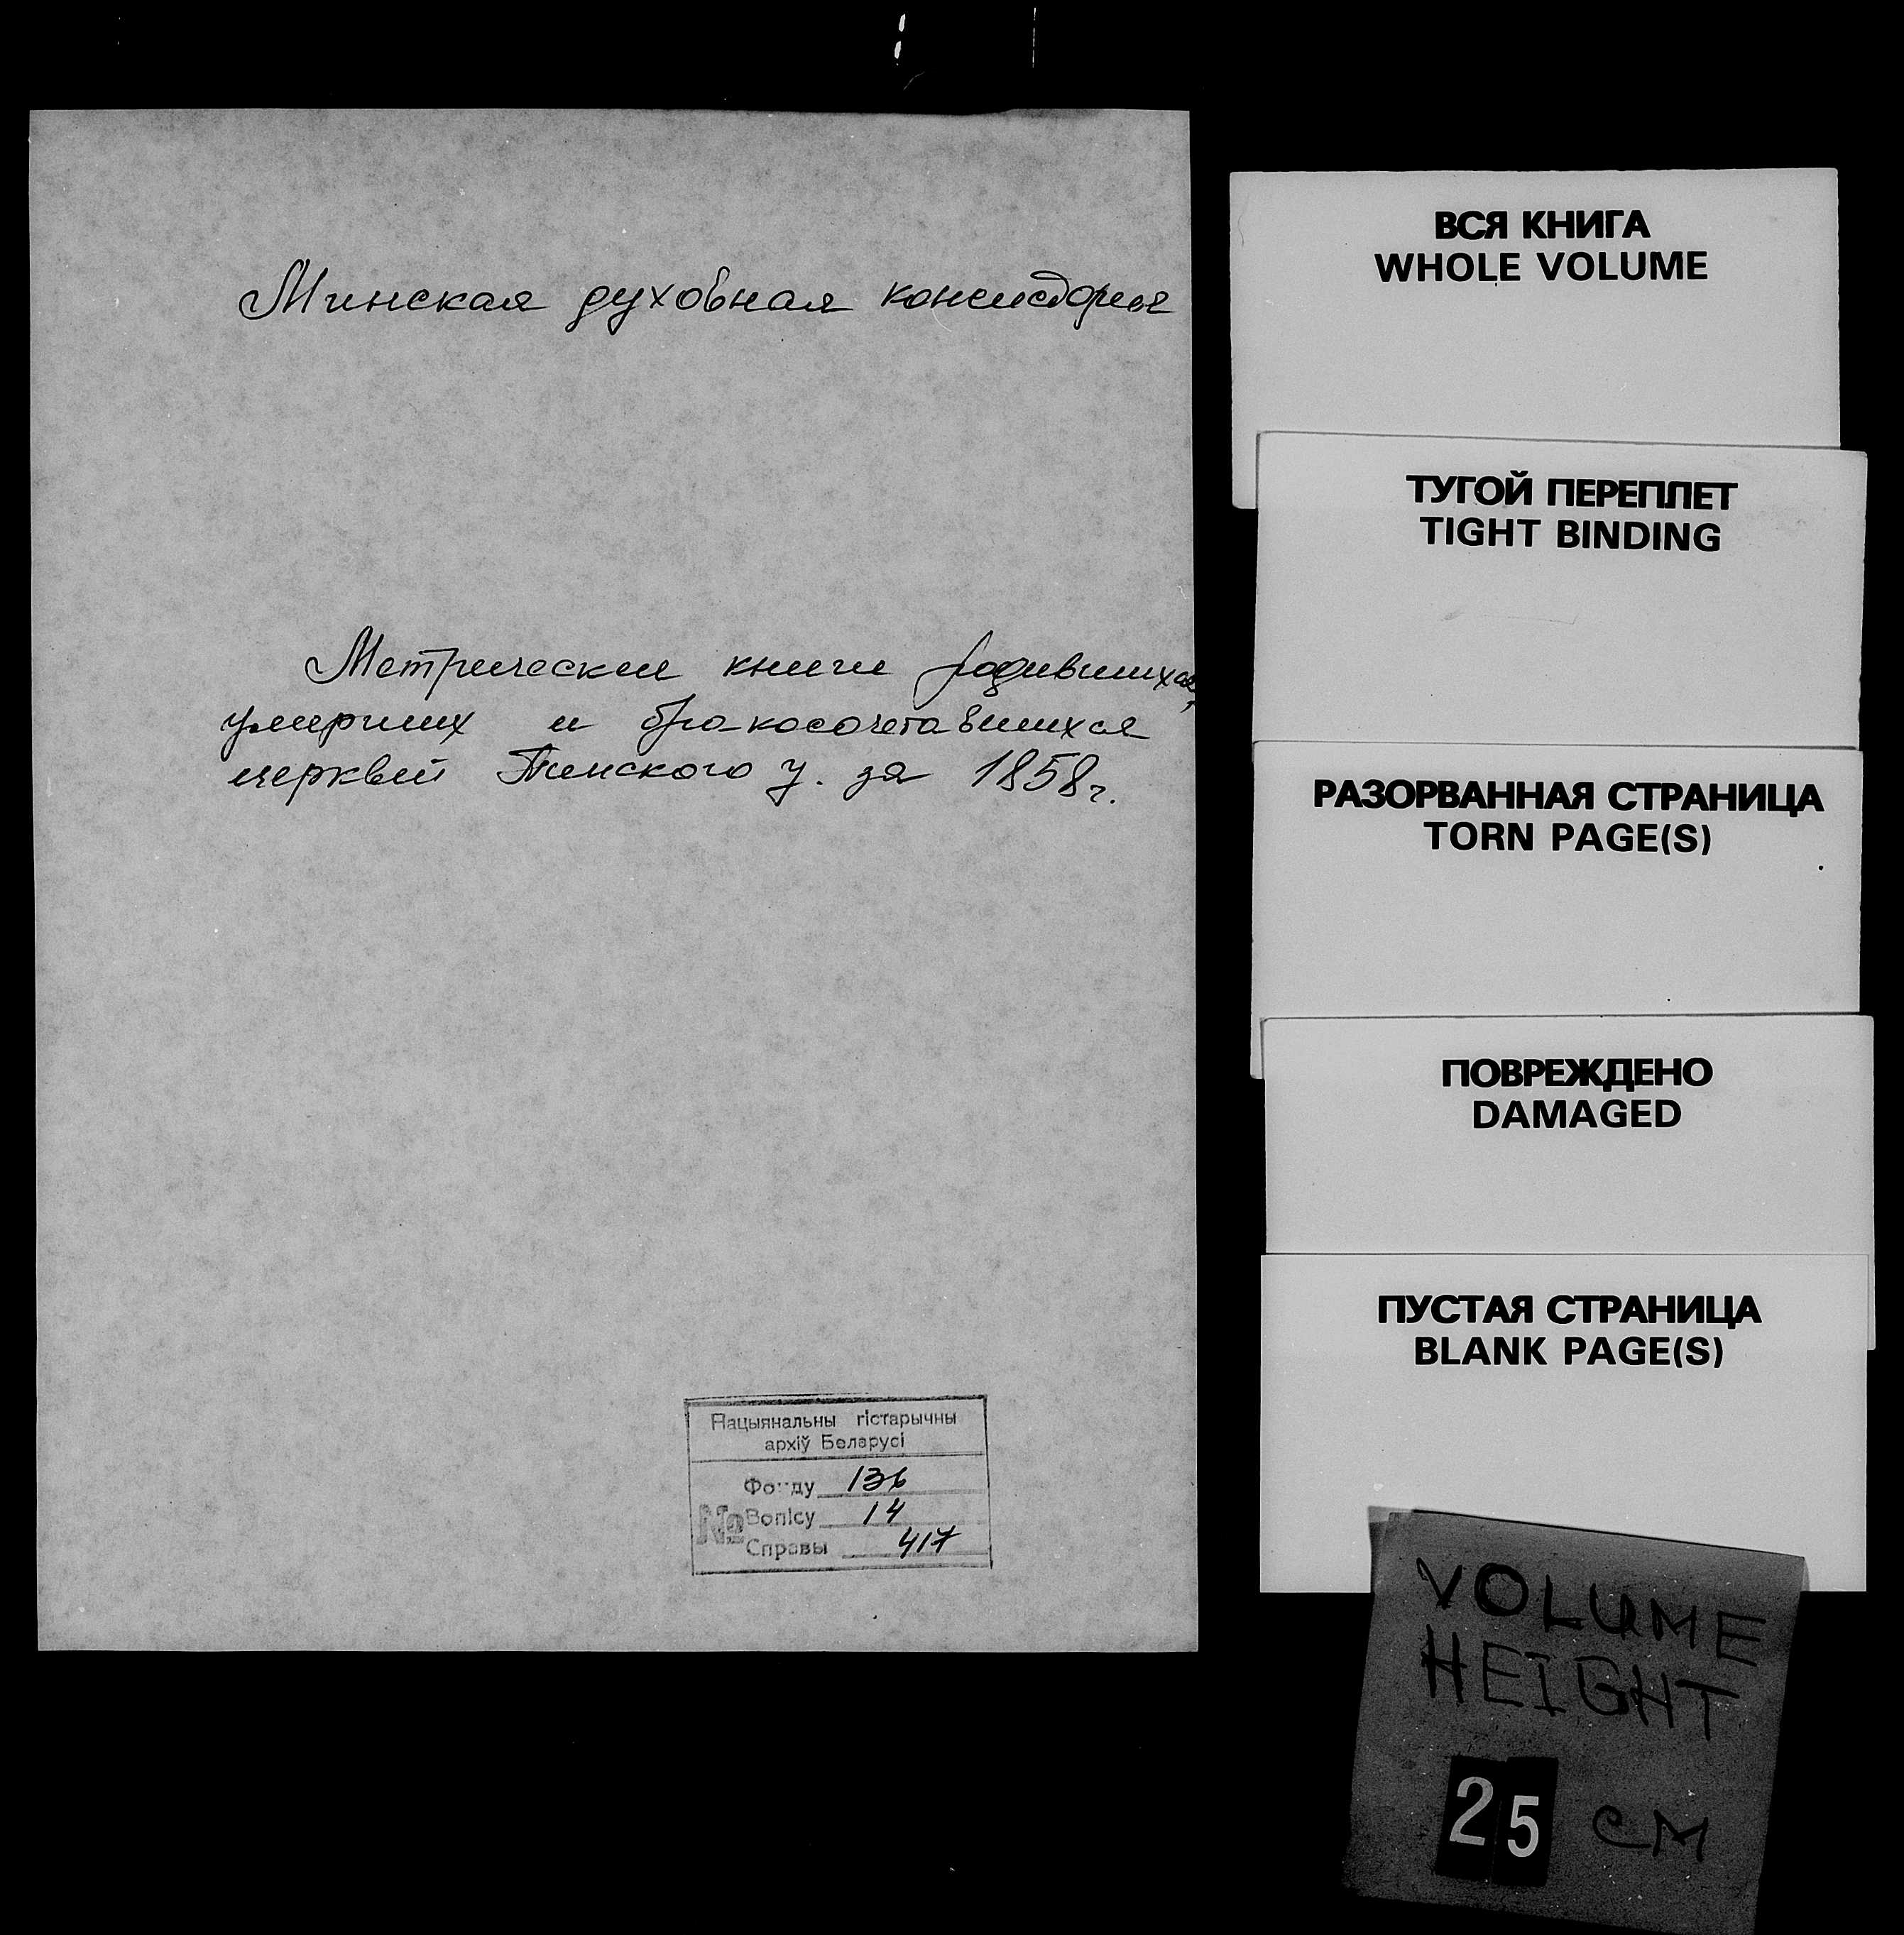 Минская духовная консистория
Метрические книги родившихся,
умерших и бракосочетавшихся
церквей Пинского у. за 1858 г.
Нацыянальны гістарычны
архіў Беларусі
Фонду 136
№ Вопісу 14
Справы 417
ВСЯ КНИГА
WHOLE VOLUME
ТУГОЙ ПЕРЕПЛЕТ
TIGHT BINDING
РАЗОРВАННАЯ СТРАНИЦА
TORN PAGE(S)
ПОВРЕЖДЕНО
DAMAGED
ПУСТАЯ СТРАНИЦА
BLANK PAGE(S)
VOLUME
HEIGHT
25 CM